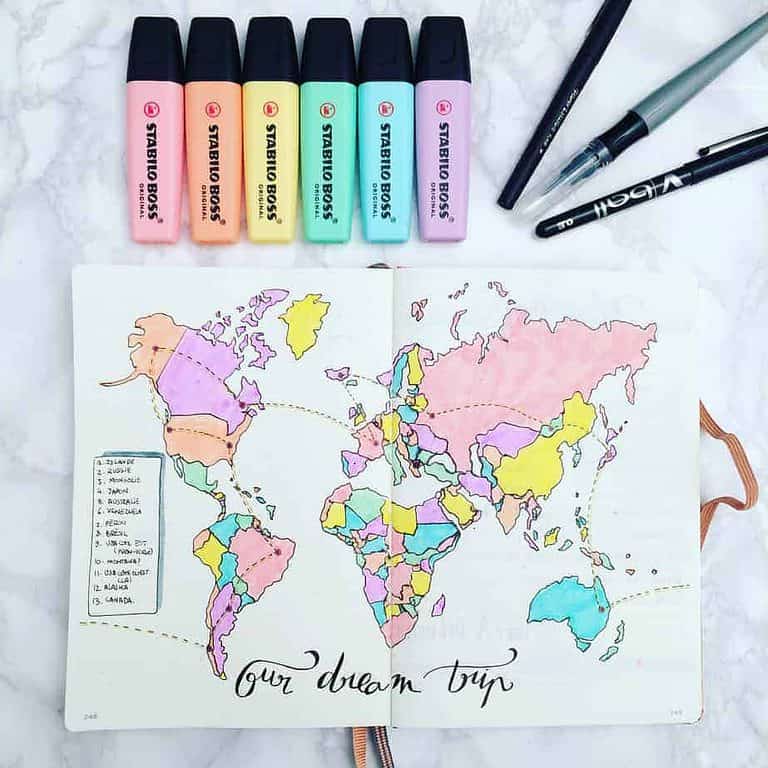 STABILO BOSS
ORIGINAL
STABILO BOSS
ORIGINAL
STABILO BOSS
ORIGINAL
STABILO BOSS
ORIGINAL
STABILO BOSS
ORIGINAL
STABILO BOSS
ORIGINAL
Vball
1. ISLANDE
2. RUSSIE
3. MONGOLIE
4. JAPON
5. AUSTRALIE
6. VENEZUELA
7. PÉROU
8. BRÉSIL
9. USA CÔTE EST
10. MONTANA?
11. USA CÔTE OUEST
12. ALASKA
13. CANADA.
our dream trip
248
249